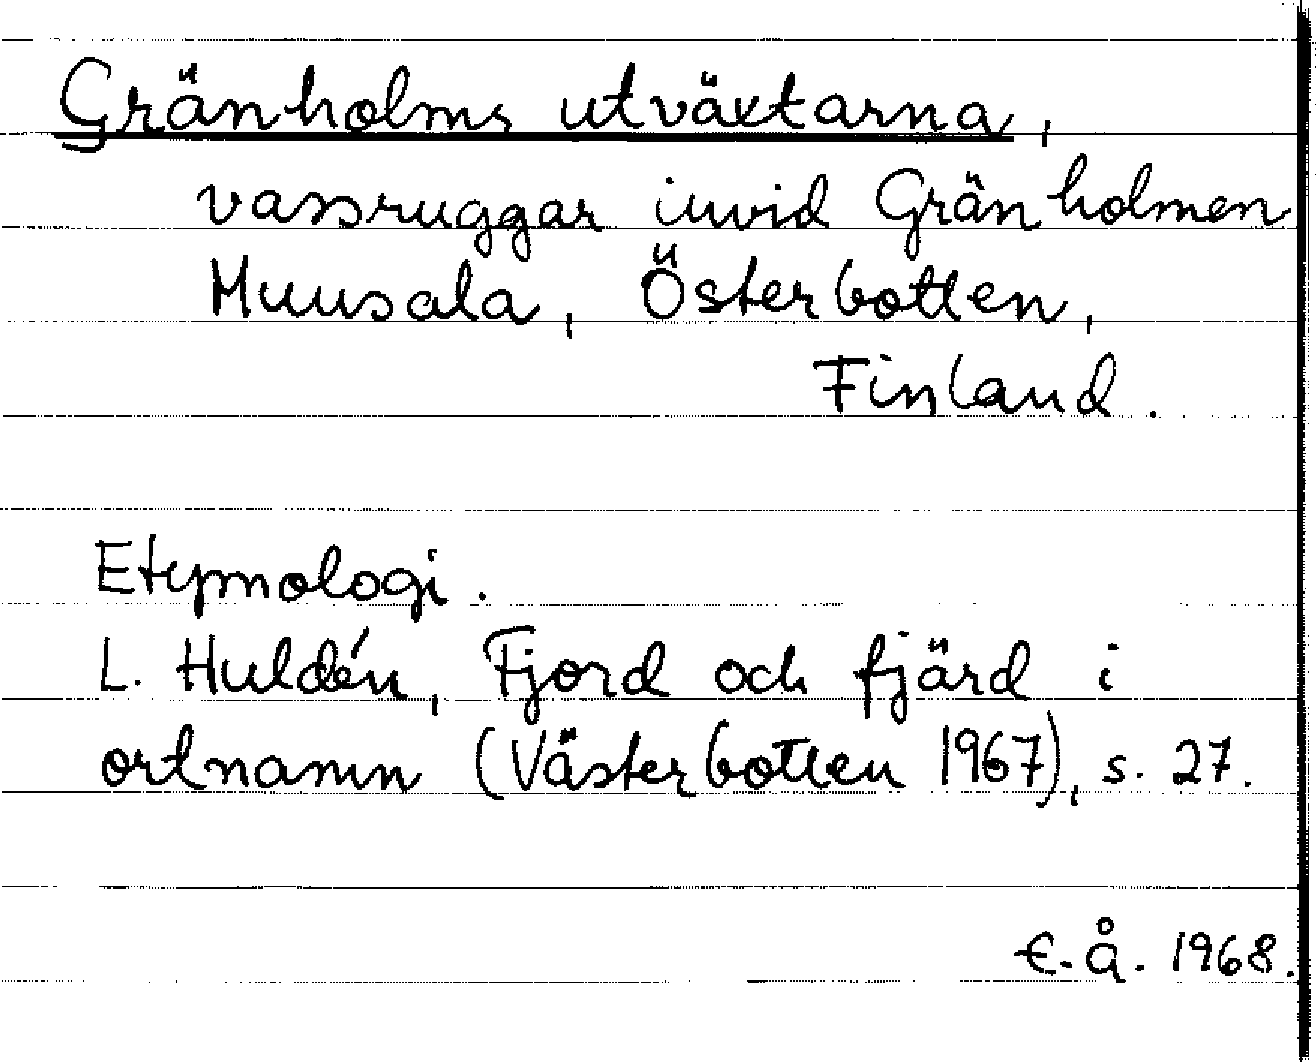 Gränholms utväxtarna,
vassruggar invid Gränholmen
Muusala, Österbotten,
Finland.
Etymologi.
L. Huldén, Fjord och fjärd i
ortnamn (Västerbotten 1967), s. 27.
E.Å. 1968.